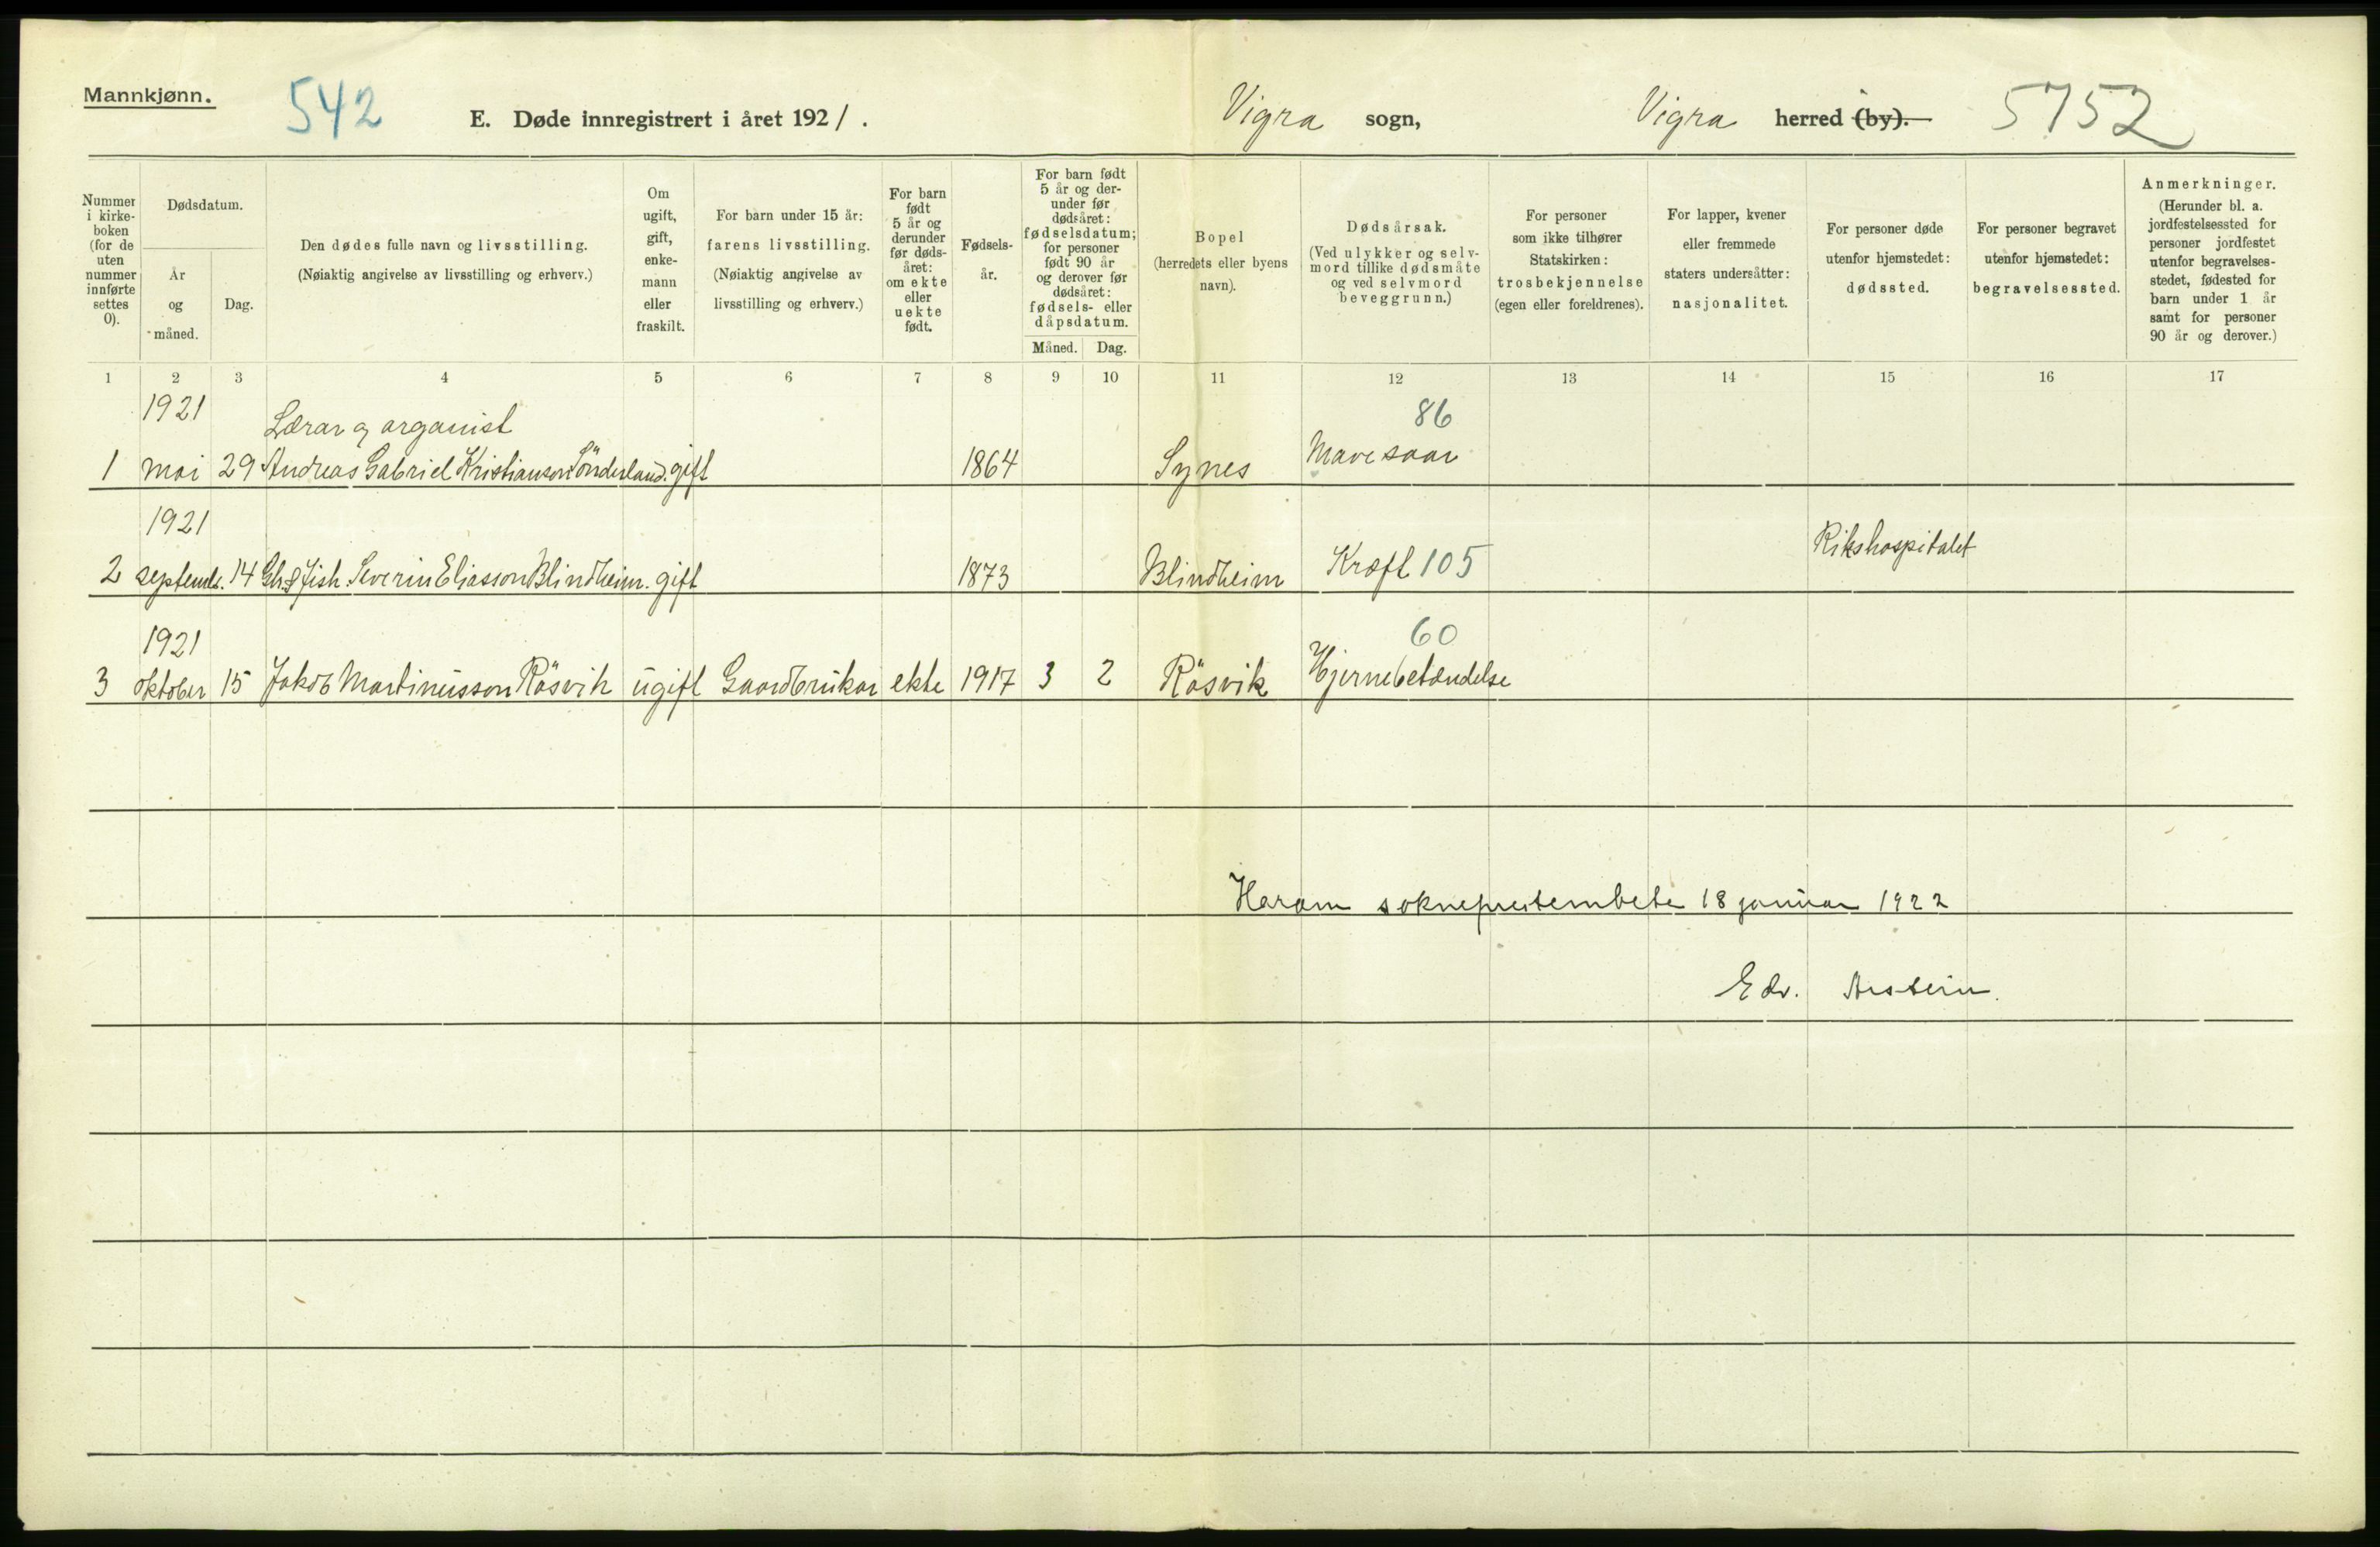 Mannkjønn.
542
E. Døde innregistrert i året 1921.
Vigra sogn,
Vigra herred (by).
5752
Nummer i kirke- boken (for de uten nummer innførte settes 0).
Dødsdatum.
År og måned.
Dag.
Den dødes fulle navn og livsstilling.
(Nøiaktig angivelse av livsstilling og erhverv.)
Om ugift, gift, enke- mann eller fraskilt.
For barn under 15 år: farens livsstilling.
(Nøiaktig angivelse av livsstilling og erhverv.)
For barn født 5 år og derunder før døds- året: om ekte eller uekte født.
Fødsels- år.
For barn født 5 år og der- under før dødsåret: fødselsdatum; for personer født 90 år og derover før dødsåret: fødsels- eller dåpsdatum.
Måned. Dag.
Bopel
(herredets eller byens navn).
Dødsårsak.
(Ved ulykker og selv- mord tillike dødsmåte og ved selvmord beveggrunn.)
For personer som ikke tilhører Statskirken: trosbekjennelse (egen eller foreldrenes).
For lapper, kvener eller fremmede staters undersåtter: nasjonalitet.
For personer døde utenfor hjemstedet: dødssted.
For personer begravet utenfor hjemstedet: begravelsessted.
Anmerkninger.
(Herunder bl. a. jordfestelsessted for personer jordfestet utenfor begravelses- stedet, fødested for barn under 1 år samt for personer 90 år og derover.)
1 2 3 4 5 6 7 8 9 10 11 12 13 14 15 16 17
1921 Lærar og organist 86
1 mai 29 Andreas Gabriel Kristianson Sönderland. gift 1864 Synes Mavesaar
1921 Rikshospitalet
2 septemb. 14 Gbr. & fish. Severin Eliasson Blindheim. gift 1873 Blindheim Kræft 105
1921 60
3 oktober 15 Jakob Martinusson Rösvik ugift Gaardbrukar ekte 1917 3 2 Rösvik Hjernebetændelse
Haram sokneprestembete 18 januar 1922
Edv. Arstein.